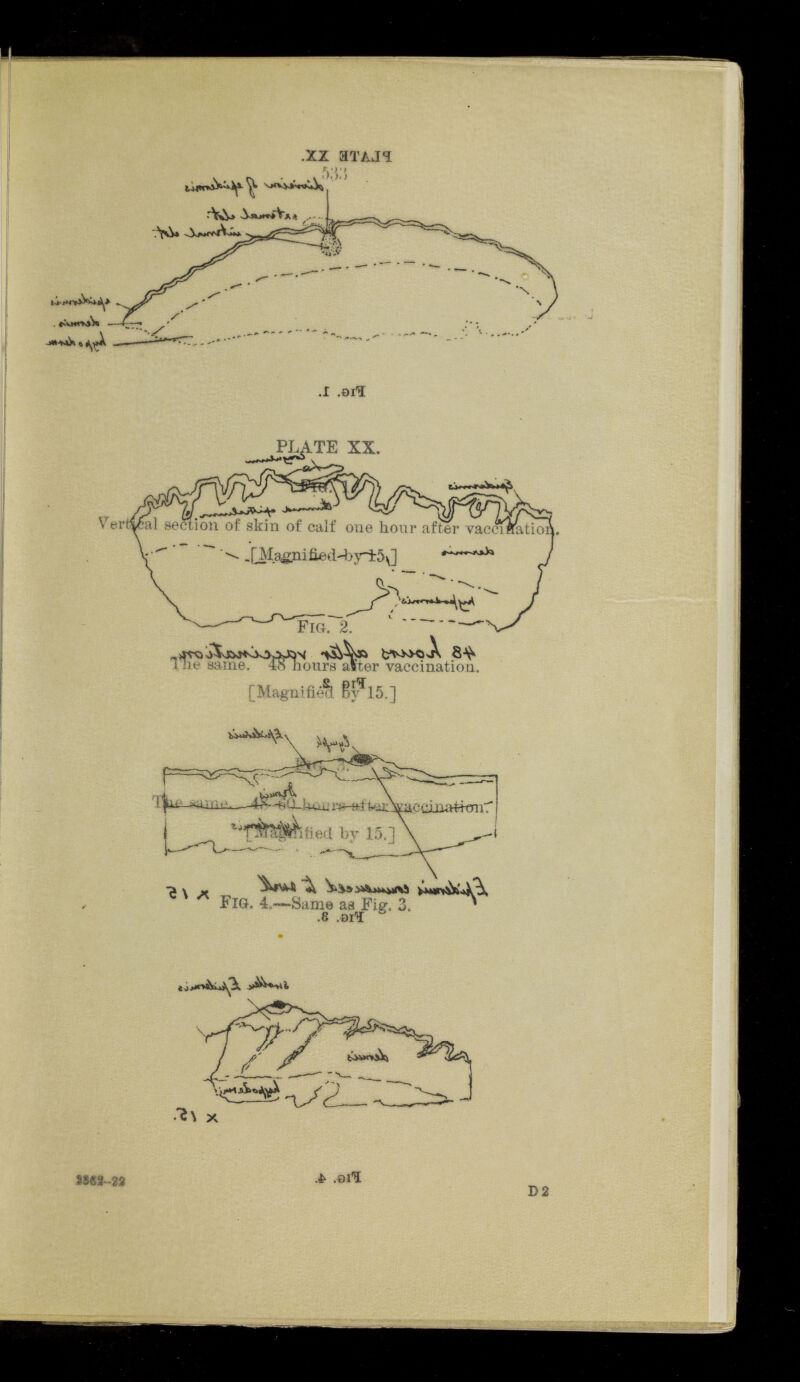 PLATE XX.
533
division of epidermis
external clot
internal clot
epidermis
dermis
hypoderm
FIG. 1.
PLATE XX.
Coagulum
FIG.
Epidermis
Vertical section of skin of calf one hour after vaccination.
[Magnified by 15.]
dermis
hypodermis
FIG. 2.
48 hours after vaccination.
The same. 48 hours after vaccination.
FIG 2.
[Magnified by 15.]
Epidermis
lymph
FIG. 3.
dermis
The same. 48-60 hours after vaccination.
hypodermis
[Magnified by 15.]
Epidermis commenced to swell
x 15
FIG. 4.—Same as Fig. 3.
FIG. 3.
swollen Epidermis
dermis
hypodermis
x 15.
FIG. 4.
D 2